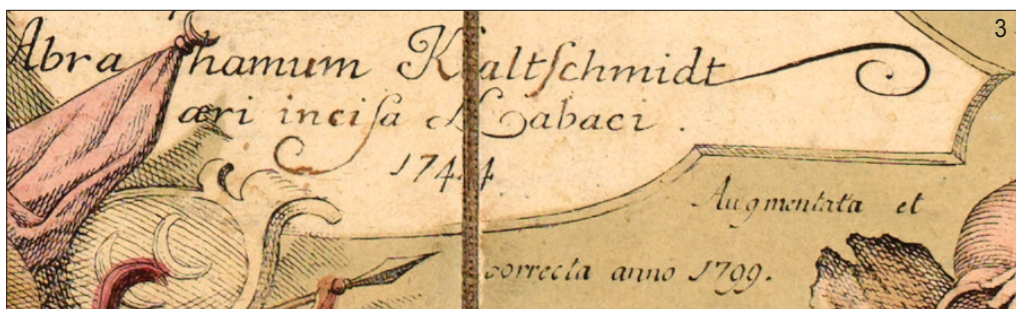 3
Abrahamum Kaltſchmidt
æri inciſa Labaci.
1744
Augmentata et
correcta anno 1799.